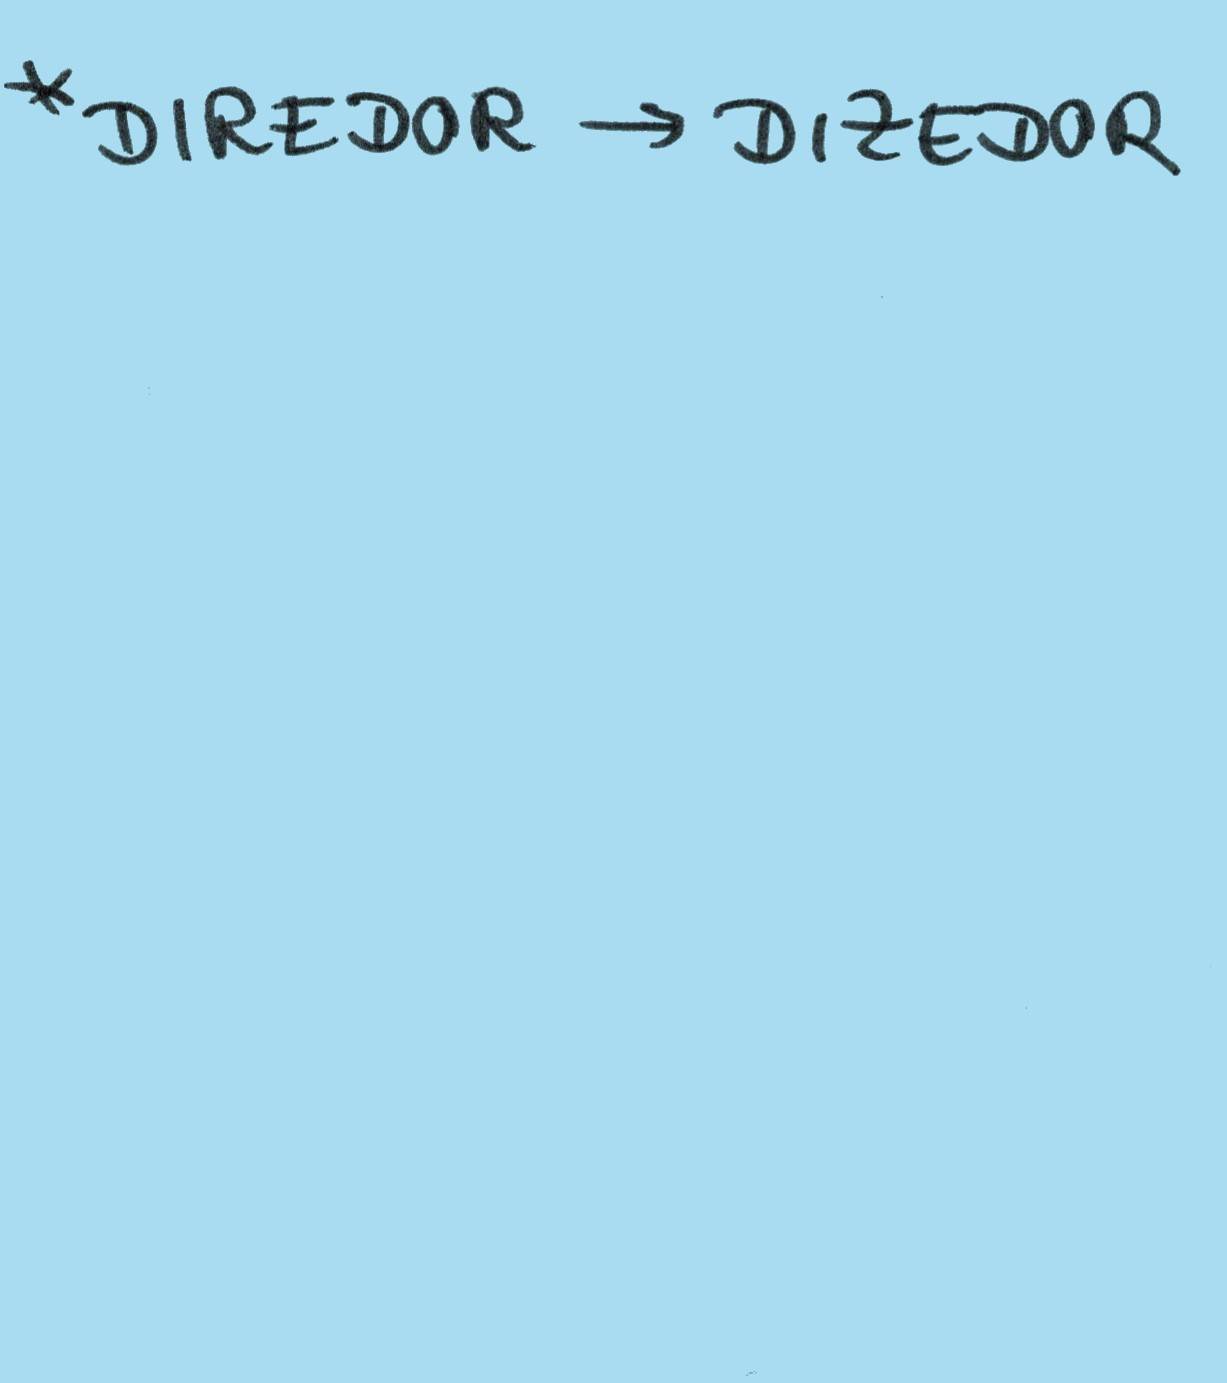 *DIREDOR → DIZEDOR